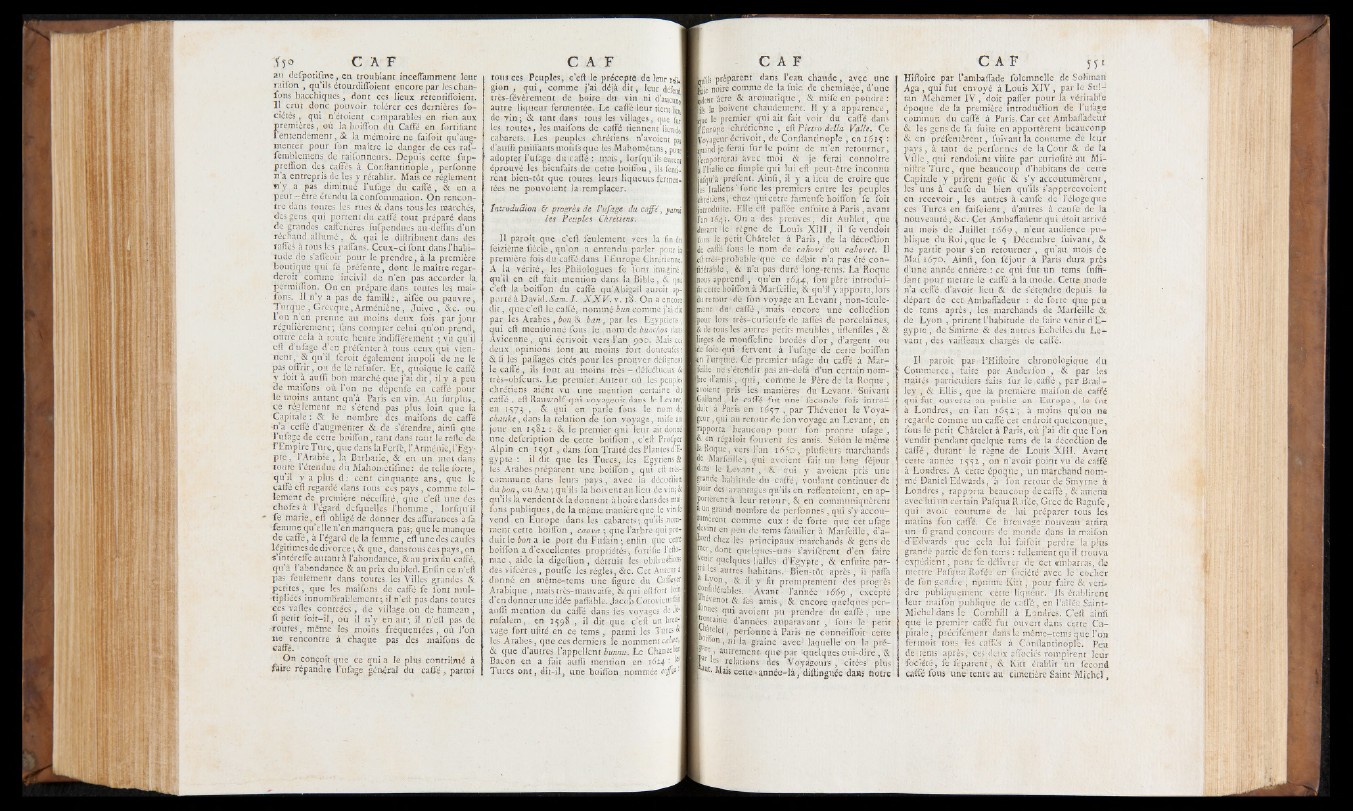 550 C A F
au despotisme, en troublant incessamment leur
raison, qu'ils étourdissoient encore par les chan-
sons bacchiques, dont ces lieux retentissoient.
Il crut donc pouvoir tolérer ces dernières so-
ciétés, qui n'étoient comparables en rien aux
premières, où la boisson du Caffé en fortifiant
l'entendement, & la mémoire ne faisoit qu'aug-
menter pour son maître le danger de ces ras-
semblemens de raisonneurs. Depuis cette sup-
pression des caffés à Constantinople, personne
n'a entrepris de les y rétablir. Mais ce règlement
n'y a pas diminué l'usage du caffé, & en a
peut-être étendu la consommation. On rencon-
tre dans toutes les rues & dans tous les marchés,
des gens qui portent du caffé tout préparé dans
de grandes caffetières suspendues au-dessus d'un
réchaud allumé, & qui le distribuent dans des
tasses à tous les passans. Ceux-ci sont dans l'habi-
tude de s'asseoir pour le prendre, à la première
boutique qui se présente, dont le maître regar-
deroit comme incivil de n'en pas accorder la
permission. On en prépare dans toutes les mai-
sons. Il n'y a pas de famille, aisée ou pauvre,
Turque, Grecque, Arménienne, Juive, &c. où
l'on n'en prenne au moins deux fois par jour
régulièrement; sans compter celui qu'on prend,
outre cela à toute heure indifféremment; vu qu'il
est d'usage d'en présenter à tous ceux qui vien-
nent, & qu'il seroit également impoli de ne le
pas offrir, ou de le refuser. Et, quoique le caffé
y soit à aussi bon marché que j'ai dit, il y a peu
de maisons où l'on ne dépense de en caffé pour
le moins autant qu'à Paris en vin. Au surplus,
ce règlement ne s'étend pas plus loin que la
Capitale: & le nombre des maisons de caffé
n'a cessé d'augmenter & de s'étendre, ainsi que
l'usage de cette boisson, tant dans tout le reste de
l'Empire Turc, que dans la Perse, l'Arménie, l'Egy-
pte, l'Arabie, la Barbarie, & en un mot dans
toute l'étendue du Mahométisme: de telle sorte,
qu'il y a plus d: cent cinquante ans, que le
caffé est regardé dans tous ces pays, comme tel-
lement de première nécessité, que c'est une des
choses à l'égard desquelles l'homme, lorsqu'il
se marie, est obligé de donner des assurances à sa
femme qu'elle n'en manquera pas; que le manque
de caffé, à l'égard de la femme, est une des causes
légitimes de divorce, & que, dans tous ces pays, on
s'intéresse autant à l'abondance, & au prix du caffé,
qu'à l'abondance & au prix du bled. Enfin ce n'est
pas seulement dans toutes les Villes grandes &
petites, que les maisons de caffé se sont mul-
tipliées innombrablement; il n'est pas dans toutes
ces vastes contrées, de village ou de hameau,
si petit soit-il, où il n'y en ait; il n'est pas de
routes, même les moins fréquentées, où l'on
ne rencontre à chaque pas des maisons de
caffé.
On conçoit que ce qui a le plus contribué à
faire répandre l'usage général du caffé, parmi
C A F
tous ces Peuples, c'est le précepte de leur reli-
gion, qui, comme j'ai déjà dit, leur défend
très-sévèrement de boire du vin ni d'aucune
autre liqueur fermentée. Le caffé leur tient lieu
de vin; & tant dans tous les villages, que sur
les routes, les maisons de caffé tiennent lieu de
cabarets. Les peuples chrétiens n'avoient pas
d'aussi puissans motifs que les Mahométans, pour
adopter l'usage du caffé: mais, lorsqu'ils eurent
éprouvé les bienfaits de cette boisson, ils senti-
rent bien-tôt que toutes leurs liqueurs fermen-
tées ne pouvoient la remplacer.
Introduction & progrès de l'usage du caffé, parmi
les Peuples Chrétiens.
Il paroît que c'est seulement vers la fin du
seizième siècle, qu'on a entendu parler pour la
première fois du caffé dans l'Europe Chrétienne.
A la vérité, les Philologues se sont imaginé
qu'il en est fait mention dans la Bible, & que
c'est la boisson du caffé qu'Abigaïl auroit ap-
porté à David. Sam. I. XXV. v. 18. On a encore
dit, que c'est le caffé, nommé bun comme j'ai dit
par les Arabes, bon & ban, par les Egyptiens,
qui est mentionné sous le nom de bunchos dans
Avicenne, qui écrivoit vers l'an 900. Mais ces
deux opinions sont au moins fort douteuses:
& si les passages cités pour les prouver désignent
le caffé, ils sont au moins très-défectueux &
très-obscurs. Le premier Auteur où les peuples
chrétiens aient vu une mention certaine du
caffé, est Rauwolf qui voyageoit dans le Levant
en 1573, & qui en parle sous le nom de
chaube, dans la relation de son voyage, mise au
jour en 1582: & le premier qui leur ait donné
une description de cette boisson, c'est Prosper
Alpin en 1591, dans son Traité des Plantes d'E-
gypte: il dit que les Turcs, les Egyptiens &
les Arabes préparent une boisson, qui est très-
commune dans leurs pays, avec la décoction
du bon, ou ban; qu'ils la boivent au lieu de vin; &
qu'ils la vendent & la donnent à boire dans des mai-
sons publiques, de la même manière que le vin se
vend en Europe dans les cabarets; qu'ils nom-
ment cette boisson, caova; que l'arbre qui pro-
duit le bon a le port du Fusain; enfin que cette
boisson a d'excellentes propriétés, fortifie l'esto-
mac, aide la digestion, détruit les obstructions
des viscères, pousse les règles, &c. Cet Auteur a
donné en même-tems une figure du Caffeyer
Arabique, mais très-mauvaise, & qui est fort loin
d'en donner une idée passable. Jacob Cotovicus fait
aussi mention du caffé dans ses voyages de Jé-
rusalem, en 1598, il dit que c'est un breu-
vage fort usité en ce tems, parmi les Turcs &
les Arabes, que ces derniers le nomment
& que d'autres l'appellent bunnu. Le Chancelier
Bacon en a fait aussi mention en 1624: les
Turcs ont, dit-il, une boisson nommée
C A F
qu'ils préparent dans l'eau chaude, avec une
noire comme de la suie de cheminée, d'une
odeur âcre & aromatique, & mise en poudre:
ils la boivent chaudement. Il y a apparence,
que le premier qui ait fait voir du caffé dans
l'Europe chrétienne, est Pietro della Valle. Ce
Voyageur écrivoit, de Constantinople, en 1615:
quand je serai sur le point de m'en retourner,
j'emporterai avec moi & je ferai connoître
à l'Italie ce simple qui lui est peut-être inconnu
jusqu'à présent. Ainsi, il y a lieu de croire que
les Italiens sont les premiers entre les peuples
chrétiens, chez qui cette fameuse boisson se soit
introduite. Elle est passée ensuite à Paris, avant
l'an 1643. On a des preuves, dit Aublet, que
durant le règne de Louis XIII, il se vendoit
sous le petit Châtelet à Paris, de la décoction
de caffé sous le nom de cahové ou cahovet. Il
est très-probable que ce débit n'a pas été con-
sidérable, & n'a pas duré long-tems. La Roque
nous apprend, qu'en 1644, son père introdui-
sit cette boisson à Marseille, & qu'il y apporta, lors
du retour de son voyage au Levant, non-seule-
ment du caffé, mais encore une collection
pour lors très-curieuse de tasses de porcelaines,
& de tous les autres petits meubles, ustensiles, &
linges de mousseline brodés d'or, d'argent ou
de soie qui servent à l'usage de cette boisson
en Turquie. Ce premier usage du caffé à Mar-
seille ne s'étendit pas au-delà d'un certain nom-
bre d'amis, qui, comme le Père de la Roque,
avoient pris les manières du Levant. Suivant
Galland, le caffé fut une seconde fois intro-
duit à Paris en 1657, par Thévenot le Voya-
geur, qui au retour de son voyage au Levant, en
rapporta beaucoup pour son propre usage,
& en régaloit souvent ses amis. Selon le même
la Roque, vers l'an 1650, plusieurs marchands
de Marseille, qui avoient fait un long séjour
dans le Levant, & qui y avoient pris une
grande habitude du caffé, voulant continuer de
jouir des avantages qu'ils en ressentoient, en ap-
portèrent à leur retour, & en communiquèrent
à un grand nombre de personnes, qui s'y accou-
tumèrent comme eux: de sorte que cet usage
devint en peu de tems familier à Marseille, d'a-
bord chez les principaux marchands & gens de
mer, dont quelques-uns s'avisèrent d'en faire
venir quelques balles d'Egypte, & ensuite par-
mi les autres habitans. Bien-tôt après, il passa
à Lyon, & il y fit promptement des progrès
considérables. Avant l'année 1669, excepté
Thévenot & ses amis, & encore quelques per-
sonnes qui avoient pu prendre du caffé, une
trentaine d'années auparavant, sous le petit
Châtelet, personne à Paris ne connoissoit cette
boisson, ni la graine avec laquelle on la pré-
pare, autrement que par quelques oui-dire, &
par les relations des Voyageurs, citées plus
haut. Mais cette année-là, distinguée dans notre
C A F 551
Histoire par l'ambassade solemnelle de Soliman
Aga, qui fut envoyé à Louis XIV, par le Sul-
tan Mehemet IV, doit passer pour la véritable
époque de la première introduction de l'usage
commun du caffé à Paris. Car cet Ambassadeur
& les gens de sa suite en apportèrent beaucoup
& en présentèrent, suivant la coutume de leur
pays, à tant de personnes de la Cour & de la
Ville, qui rendoient visite par curiosité au Mi-
nistre Turc, que beaucoup d'habitans de cette
Capitale y prirent goût & s'y accoutumèrent,
les uns à cause du bien qu'ils s'appercevoient
en recevoir, les autres à cause de l'éloge que
ces Turcs en faisoient, d'autres à cause de la
nouveauté, &c. Cet Ambassadeur qui étoit arrivé
au mois de Juillet 1669, n'eut audience pu-
blique du Roi, que le 5 Décembre suivant, &
ne partit pour s'en retourner, qu'au mois de
Mai 1670. Ainsi, son séjour à Paris dura près
d'une année entière: ce qui fut un tems suffi-
sant pour mettre le caffé à la mode. Cette mode
n'a cessé d'avoir lieu & de s'étendre depuis le
départ de cet Ambassadeur: de sorte que peu
de tems après, les marchands de Marseille &
de Lyon, prirent l'habitude de faire venir d'E-
gypte, de Smirne & des autres Echelles du Le-
vant, des vaisseaux chargés de caffé.
Il paroît par l'Histoire chronologique du
Commerce, faite par Anderson, & par les
traités particuliers faits sur le caffé, par Brad-
ley, & Ellis, que la première maison de caffé
qui fut ouverte au public en Europe, le fut
à Londres, en l'an 1652; à moins qu'on ne
regarde comme un caffé cet endroit quelconque,
sous le petit Châtelet à Paris, où j'ai dit que l'on
vendit pendant quelque tems de la décoction de
caffé, durant le règne de Louis XIII. Avant
cette année 1552, on n'avoit point vu de caffé
à Londres. A cette époque, un marchand nom-
mé Daniel Edwards, à son retour de Smyrne à
Londres, rapporta beaucoup de caffé, & amena
avec lui un certain Pasqua Rosée, Grec de Raguse,
qui avoit coutume de lui préparer tous les
matins son caffé. Ce breuvage nouveau attira
un si grand concours de monde dans la maison
d'Edwards que cela lui faisoit perdre la plus
grande partie de son tems: tellement qu'il trouva
expédient, pour se délivrer de cet embarras, de
mettre Pasqua Rosée en société avec le cocher
de son gendre, nommé Kitt, pour faire & ven-
dre publiquement cette liqueur. Ils établirent
leur maison publique de caffé, en l'allée Saint-
Michel dans le Cornhill à Londres. C'est ainsi
que le premier caffé fut ouvert dans cette Ca-
pitale, précisément dans le même-tems que l'on
fermoit tous les caffés à Constantinople. Peu
de-tems après, ces deux associés rompirent leur
société, se séparent, & Kitt établit un second
caffé sous une tente au cimetière Saint Michel,